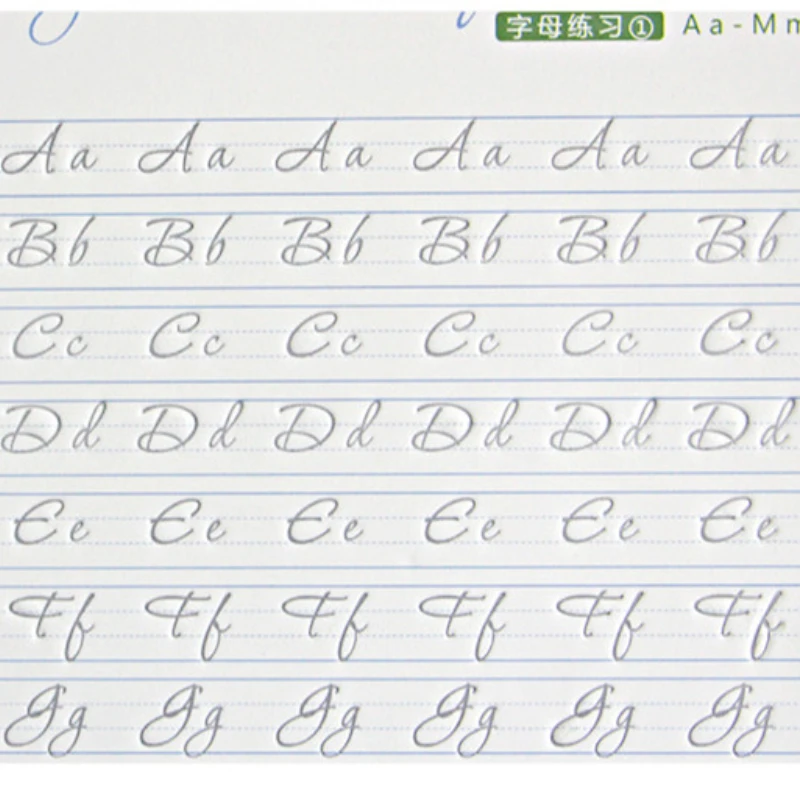 字母练习① Aa-Mm
Aa Aa Aa Aa Aa Aa
Bb Bb Bb Bb Bb Bb
Cc Cc Cc Cc Cc Cc
Dd Dd Dd Dd Dd Dd
Ee Ee Ee Ee Ee Ee
Ff Ff Ff Ff Ff Ff
Gg Gg Gg Gg Gg Gg